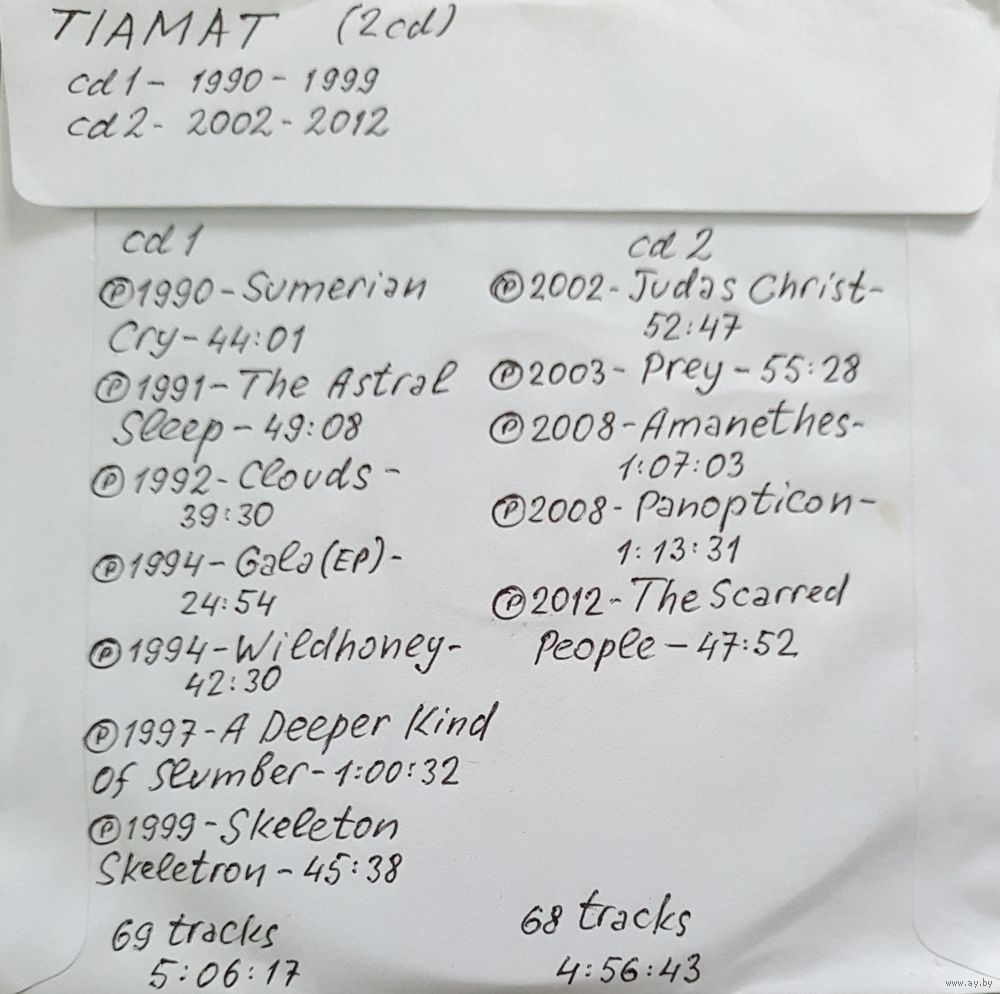 TIAMAT (2cd)
cd1 - 1990 - 1999
cd2 - 2002 - 2012
cd1
℗1990 - Sumerian
Cry - 44:01
℗1991 - The Astral
Sleep - 49:08
℗1992 - Clouds -
39:30
℗1994 - Gala (EP) -
24:54
℗1994 - Wildhoney -
42:30
℗1997 - A Deeper Kind
Of Slumber - 1:00:32
℗1999 - Skeleton
Skeletron - 45:38
69 tracks
5:06:17
cd2
℗2002 - Judas Christ -
52:47
℗2003 - Prey - 55:28
℗2008 - Amanethes -
1:07:03
℗2008 - Panopticon -
1:13:31
℗2012 - The Scarred
People - 47:52
68 tracks
4:56:43
www.ay.by